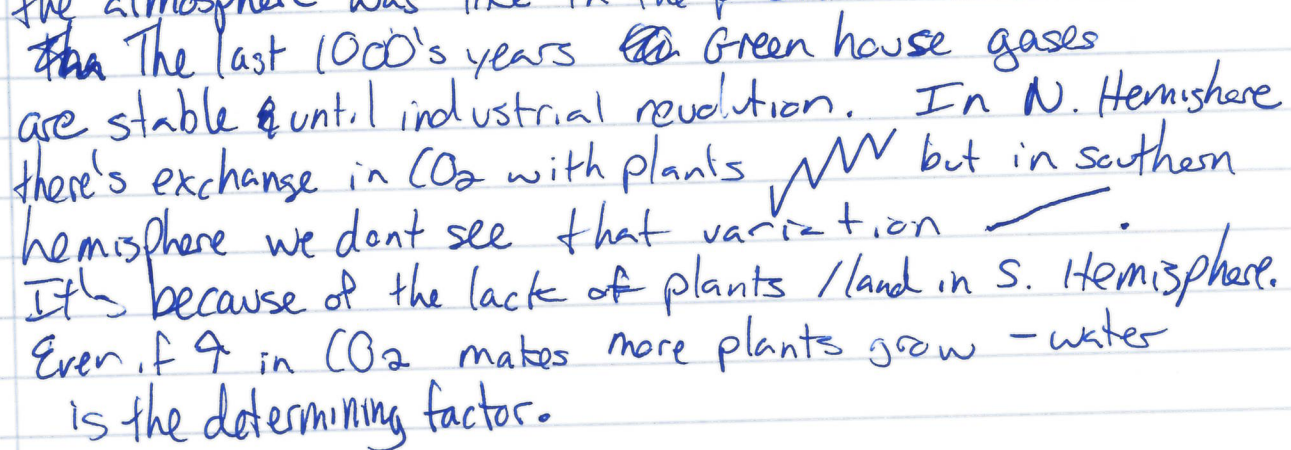 the atmosphere was like in the
The last 1000's years Green house gases
are stable & until industrial revolution. In N. Hemishere
there's exchange in CO2 with plants but in southern
hemisphere we dont see that variation .
It's because of the lack of plants / land in S. Hemisphere.
Even if ↑ in CO2 makes more plants grow - water
is the determining factor.